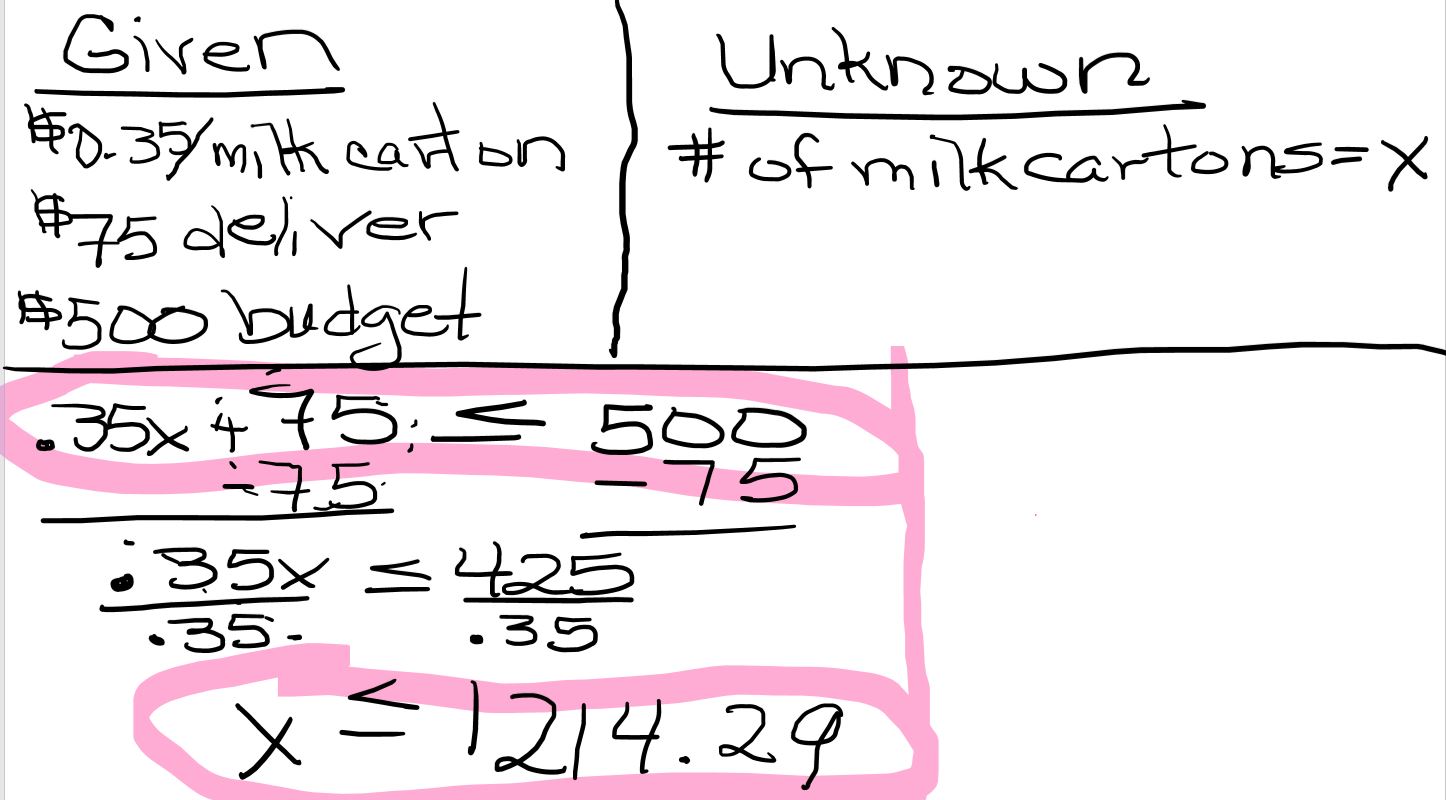 Given
$0.35/milk carton
$75 deliver
$500 budget
Unknown
# of milk cartons = x
.35x + 75 ≤ 500
-75 -75
.35x ≤ 425
.35 .35
x ≤ 1214.29